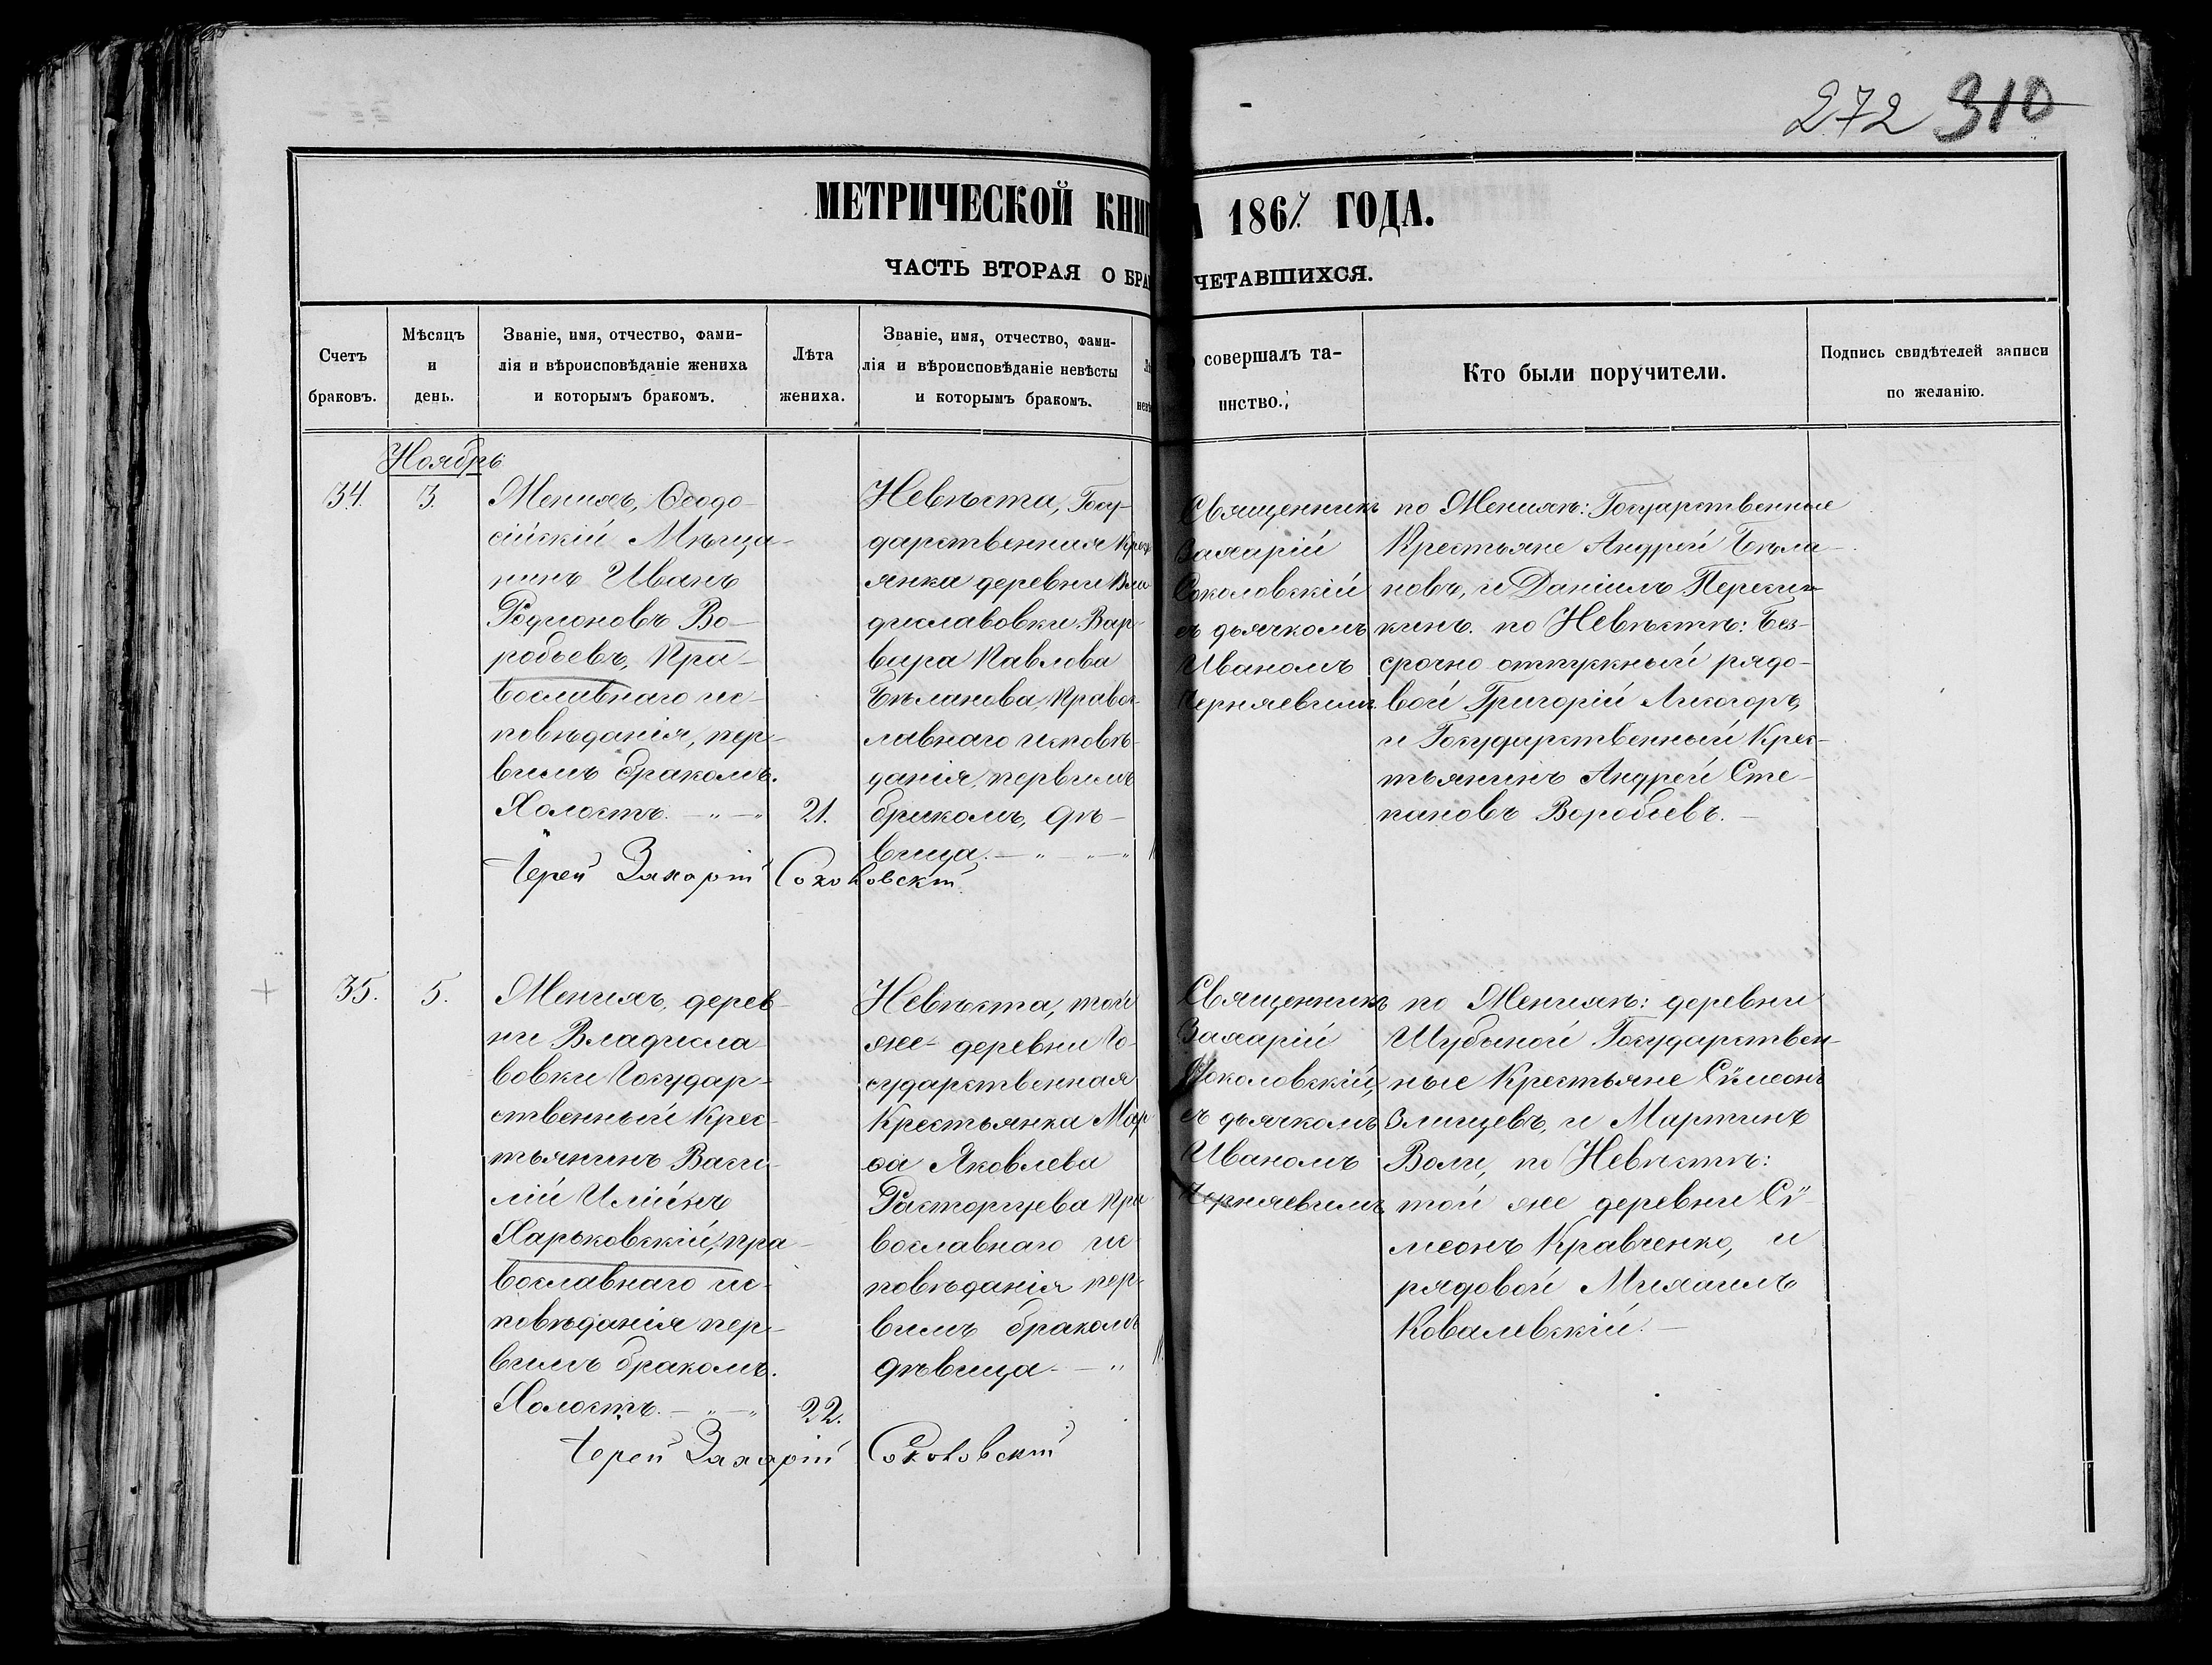 272 310
МЕТРИЧЕСКОЙ КНИГ
А 1867 ГОДА.
ЧАСТЬ ВТОРАЯ О БРА
ЧЕТАВШИХСЯ.
Счетъ
браковъ.
Мѣсяцъ
и
день.
Званіе, имя, отчество, фами-
лія и вѣроисповѣданіе жениха
и которымъ бракомъ.
Лѣта
жениха.
Званіе, имя, отчество, фами-
лія и вѣроисповѣданіе невѣсты
и которымъ бракомъ.
совершалъ та-
инство.
Кто были поручители.
Подпись свидѣтелей записи
по желанію.
Ноябрь
34.
3.
Женихъ, Ѳеодо-
сійскій Мѣща-
нинъ Иванъ
Родионовъ Во-
робьевъ, Пра-
вославнаго ис-
повѣданія, пер-
вымъ бракомъ.
Холостъ. — „ — „
21.
Невѣста, Госу-
дарственная Крест
янка деревни Вла-
диславовки Вар-
вара Павлова
Бѣланова, Правос-
лавнаго исповѣ-
данія, первымъ
бракомъ, дѣ-
вица. — „ — „
Священникъ
Захарій
Соколовскій
съ дьячкомъ
Иваномъ
Черняевымъ.
по Женихѣ: Государственные
Крестьяне Андрей Бѣла-
новъ, и Даніилъ
кинъ. по Невѣстѣ: Без-
срочно отпускный рядо-
вой Григорій Лисогоръ,
и Государственный Крес-
тьянинъ Андрей Сте-
пановъ Воробьевъ. —
Іерей Захарій Соколовскій
35.
5.
Женихъ, дерев-
ни Владисла-
вовки Государ-
ственный Крес-
тьянинъ Васи-
лій Илійнъ
Харьковскій, пра-
вославнаго ис-
повѣданія пер-
вымъ бракомъ.
Холостъ. — „ — „
22.
Невѣста, той
же деревни Го-
сударственная
Крестьянка Мар
ѳа Яковлева
Расторгуева Пра
вославнаго ис
повѣданія пер-
вымъ бракомъ
дѣвица. — „
Священникъ
Захарій
Соколовскій,
съ дьячкомъ
Иваномъ
Черняевымъ
по Женихѣ: деревни
Шубиной Государствен-
ные Крестьяне Сѵмеонъ
и Мартинъ
Воли, по Невѣстѣ:
той же деревни Сѵ-
меонъ Кравченко, и
рядовой Михаилъ
Ковалевскій. —
Іерей Захарій Соколовскій